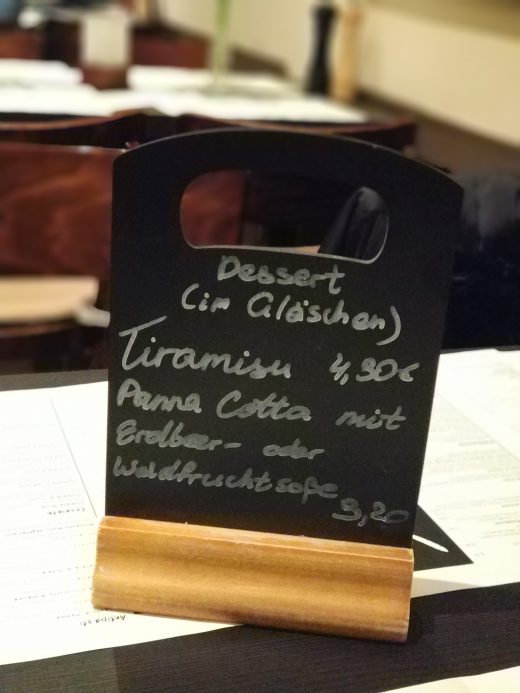 Dessert
(im Gläschen)
Tiramisu 4,30€
Panna Cotta mit
Erdbeer- oder
Waldfruchtsoße
3,20
Antipasti